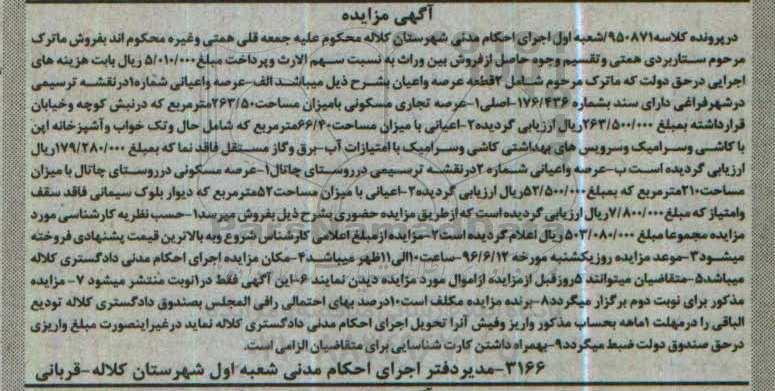 آگهی مزایده
درپرونده کلاسه۹۵۰۸۷۱/شعبه اول اجرای احکام مدنی شهرستان کلاله محکوم علیه جمعه قلی همتی وغیره محکوم اند بفروش ماترک
مرحوم ستاربردی همتی وتقسیم وجوه حاصل ازفروش بین وراث به نسبت سهم الارث وپرداخت مبلغ۵/۰۱۰/۰۰۰ ریال بابت هزینه های
اجرایی درحق دولت که ماترک مرحوم شامل ۲قطعه عرصه واعیان بشرح ذیل میباشد الف-عرصه واعیانی شماره۱درنقشه ترسیمی
درشهرفراغی دارای سند بشماره ۱۷۶/۴۳۶-اصلی۱-عرصه تجاری مسکونی بامیزان مساحت۲۶۳/۵۰مترمربع که درنبش کوچه وخیابان
قرارداشته بمبلغ ۲۶۳/۵۰۰/۰۰۰ریال ارزیابی گردیده۲-اعیانی با میزان مساحت۶۶/۴۰مترمربع که شامل حال وتک خواب وآشپزخانه اپن
با کاشی وسرامیک وسرویس های بهداشتی کاشی وسرامیک با امتیازات آب-برق وگاز مستقل فاقد نما که بمبلغ ۱۷۹/۲۸۰/۰۰۰ریال
ارزیابی گردیده است ب-عرصه واعیانی شماره ۲درنقشه ترسیمی درروستای چاتال۱-عرصه مسکونی درروستای چاتال با میزان
مساحت۲۱۰مترمربع که بمبلغ۵۲/۵۰۰/۰۰۰ریال ارزیابی گردیده۲-اعیانی با میزان مساحت۵۲مترمربع که دیوار بلوک سیمانی فاقد سقف
وامتیاز که مبلغ ۷/۸۰۰/۰۰۰ریال ارزیابی گردیده است که ازطریق مزایده حضوری بشرح ذیل بفروش میرسد۱-حسب نظریه کارشناسی مورد
مزایده مجموعا مبلغ ۵۰۳/۰۸۰/۰۰۰ ریال اعلام گردیده است۲-مزایده ازمبلغ اعلامی کارشناس شروع وبه بالاترین قیمت پیشنهادی فروخته
میشود۳-موعد مزایده روزیکشنبه مورخه ۹۶/۶/۱۲-ساعت۱۰الی۱۱ظهر میباشد۴-مکان مزایده اجرای احکام مدنی دادگستری کلاله
میباشد۵-متقاضیان میتوانند ۵روزقبل ازمزایده ازاموال مورد مزایده دیدن نمایند ۶-این آگهی فقط در۱نوبت منتشر میشود ۷-مزایده
مذکور برای نوبت دوم برگزار میگردد۸-برنده مزایده مکلف است۱۰درصد بهای احتمالی رافی المجلس بصندوق دادگستری کلاله تودیع
الباقی را درمهلت ۱ماهه بحساب مذکور واریز وفیش آنرا تحویل اجرای احکام مدنی دادگستری کلاله نماید درغیراینصورت مبلغ واریزی
درحق صندوق دولت ضبط میگردد۹-بهمراه داشتن کارت شناسایی برای متقاضیان الزامی است.
۳۱۶۶-مدیردفتر اجرای احکام مدنی شعبه اول شهرستان کلاله-قربانی